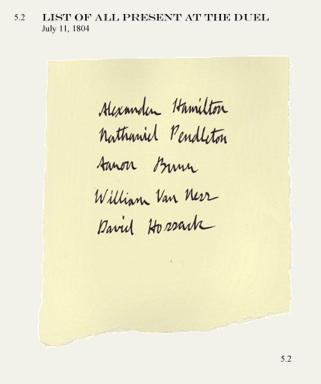 5.2 LIST OF ALL PRESENT AT THE DUEL
July 11, 1804
Alexander Hamilton
Nathaniel Pendleton
Aaron Burr
William Van Ness
David Hossack
5.2